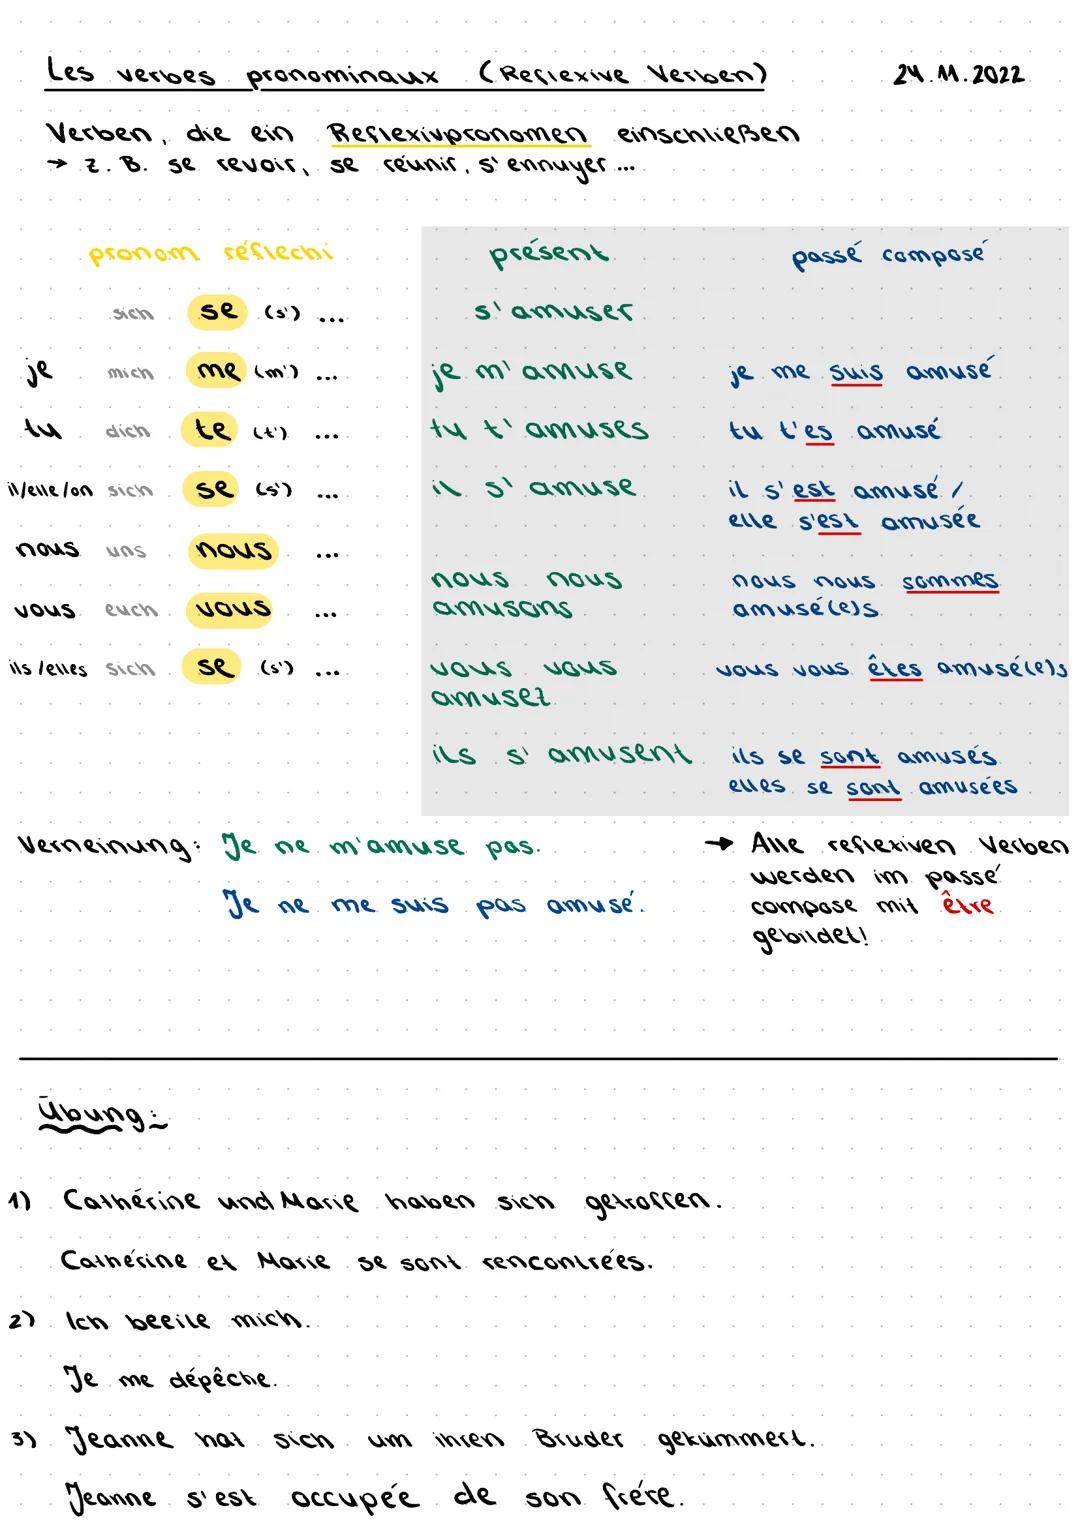 Les verbes pronominaux (Reflexive Verben) 24.11.2022
Verben, die ein Reflexivpronomen einschließen
→ z.B. se revoir, se réunir, s'ennuyer ...
pronom réflechi
sich se (s') ...
je mich me (m') ...
tu dich te (t') ...
il/elle/on sich se (s') ...
nous uns nous ...
vous euch vous ...
ils/elles sich se (s') ...
présent
s'amuser
je m'amuse
tu t'amuses
il s'amuse
nous nous
amusons
vous vous
amusez
ils s'amusent
passé composé
je me suis amusé
tu t'es amusé
il s'est amusé /
elle s'est amusée
nous nous sommes
amusé(e)s
vous vous êtes amusé(e)s
ils se sont amusés
elles se sont amusées
Verneinung: Je ne m'amuse pas.
Je ne me suis pas amusé.
→ Alle reflexiven Verben
werden im passé
compose mit être
gebildet!
Übung:
1) Cathérine und Marie haben sich getroffen.
Cathérine et Marie se sont rencontrées.
2) Ich beeile mich.
Je me dépêche.
3) Jeanne hat sich um ihren Bruder gekümmert.
Jeanne s'est occupée de son frére.